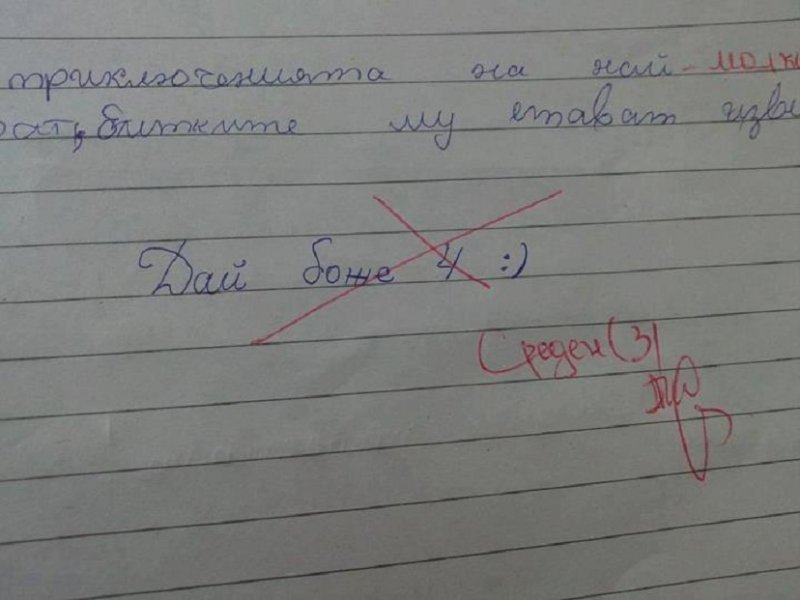 приключенията на най-малкия
брат, битките му стават
Дай боже 4 :)
Среден (3)